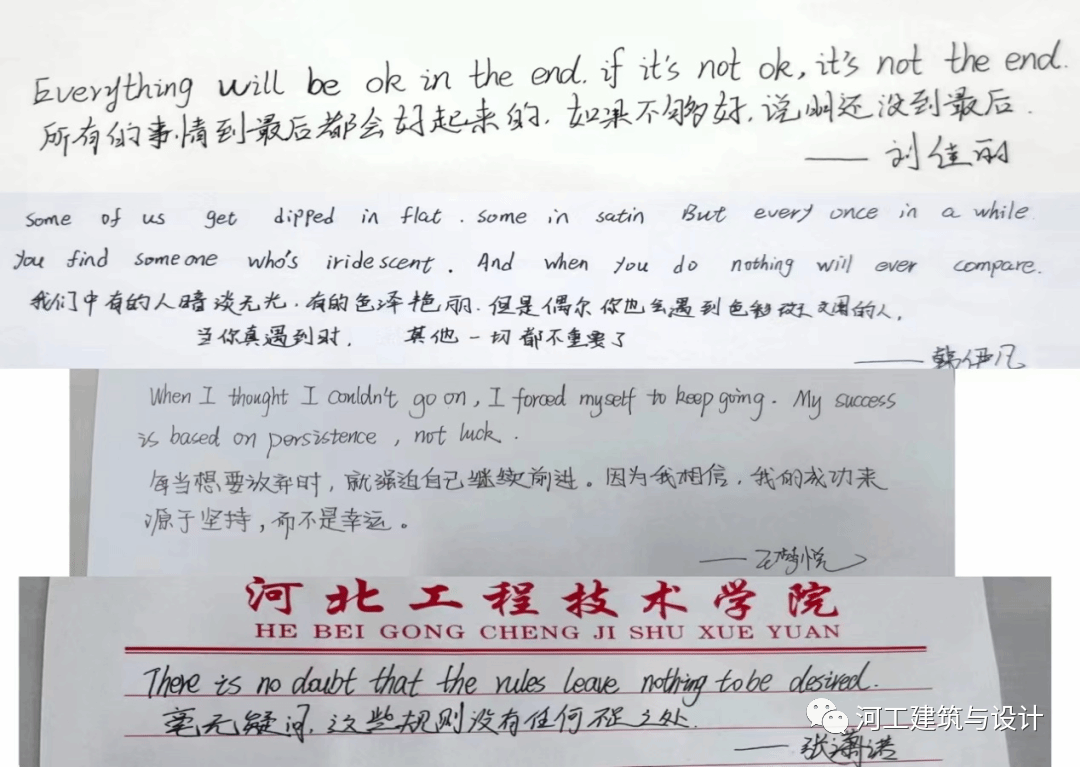 Everything will be ok in the end. if it's not ok, it's not the end.
所有的事情到最后都会好起来的. 如果不够好, 说明还没到最后.
—— 刘佳丽
some of us get dipped in flat. some in satin But every once in a while.
you find someone who's iridescent. And when you do nothing will ever compare.
我们中有的人暗淡无光. 有的色泽艳丽. 但是偶尔你也会遇到色彩斑斓的人,
当你真遇到时, 其他一切都不重要了
—— 韩伊凡
When I thought I couldn't go on, I forced myself to keep going. My success
is based on persistence, not luck.
每当想要放弃时, 就强迫自己继续前进。因为我相信, 我的成功来
源于坚持, 而不是幸运。
—— 王 悦
河北工程技术学院
HE BEI GONG CHENG JI SHU XUE YUAN
There is no doubt that the rules leave nothing to be desired.
毫无疑问, 这些规则没有任何不足之处.
—— 张潇诺
河工建筑与设计